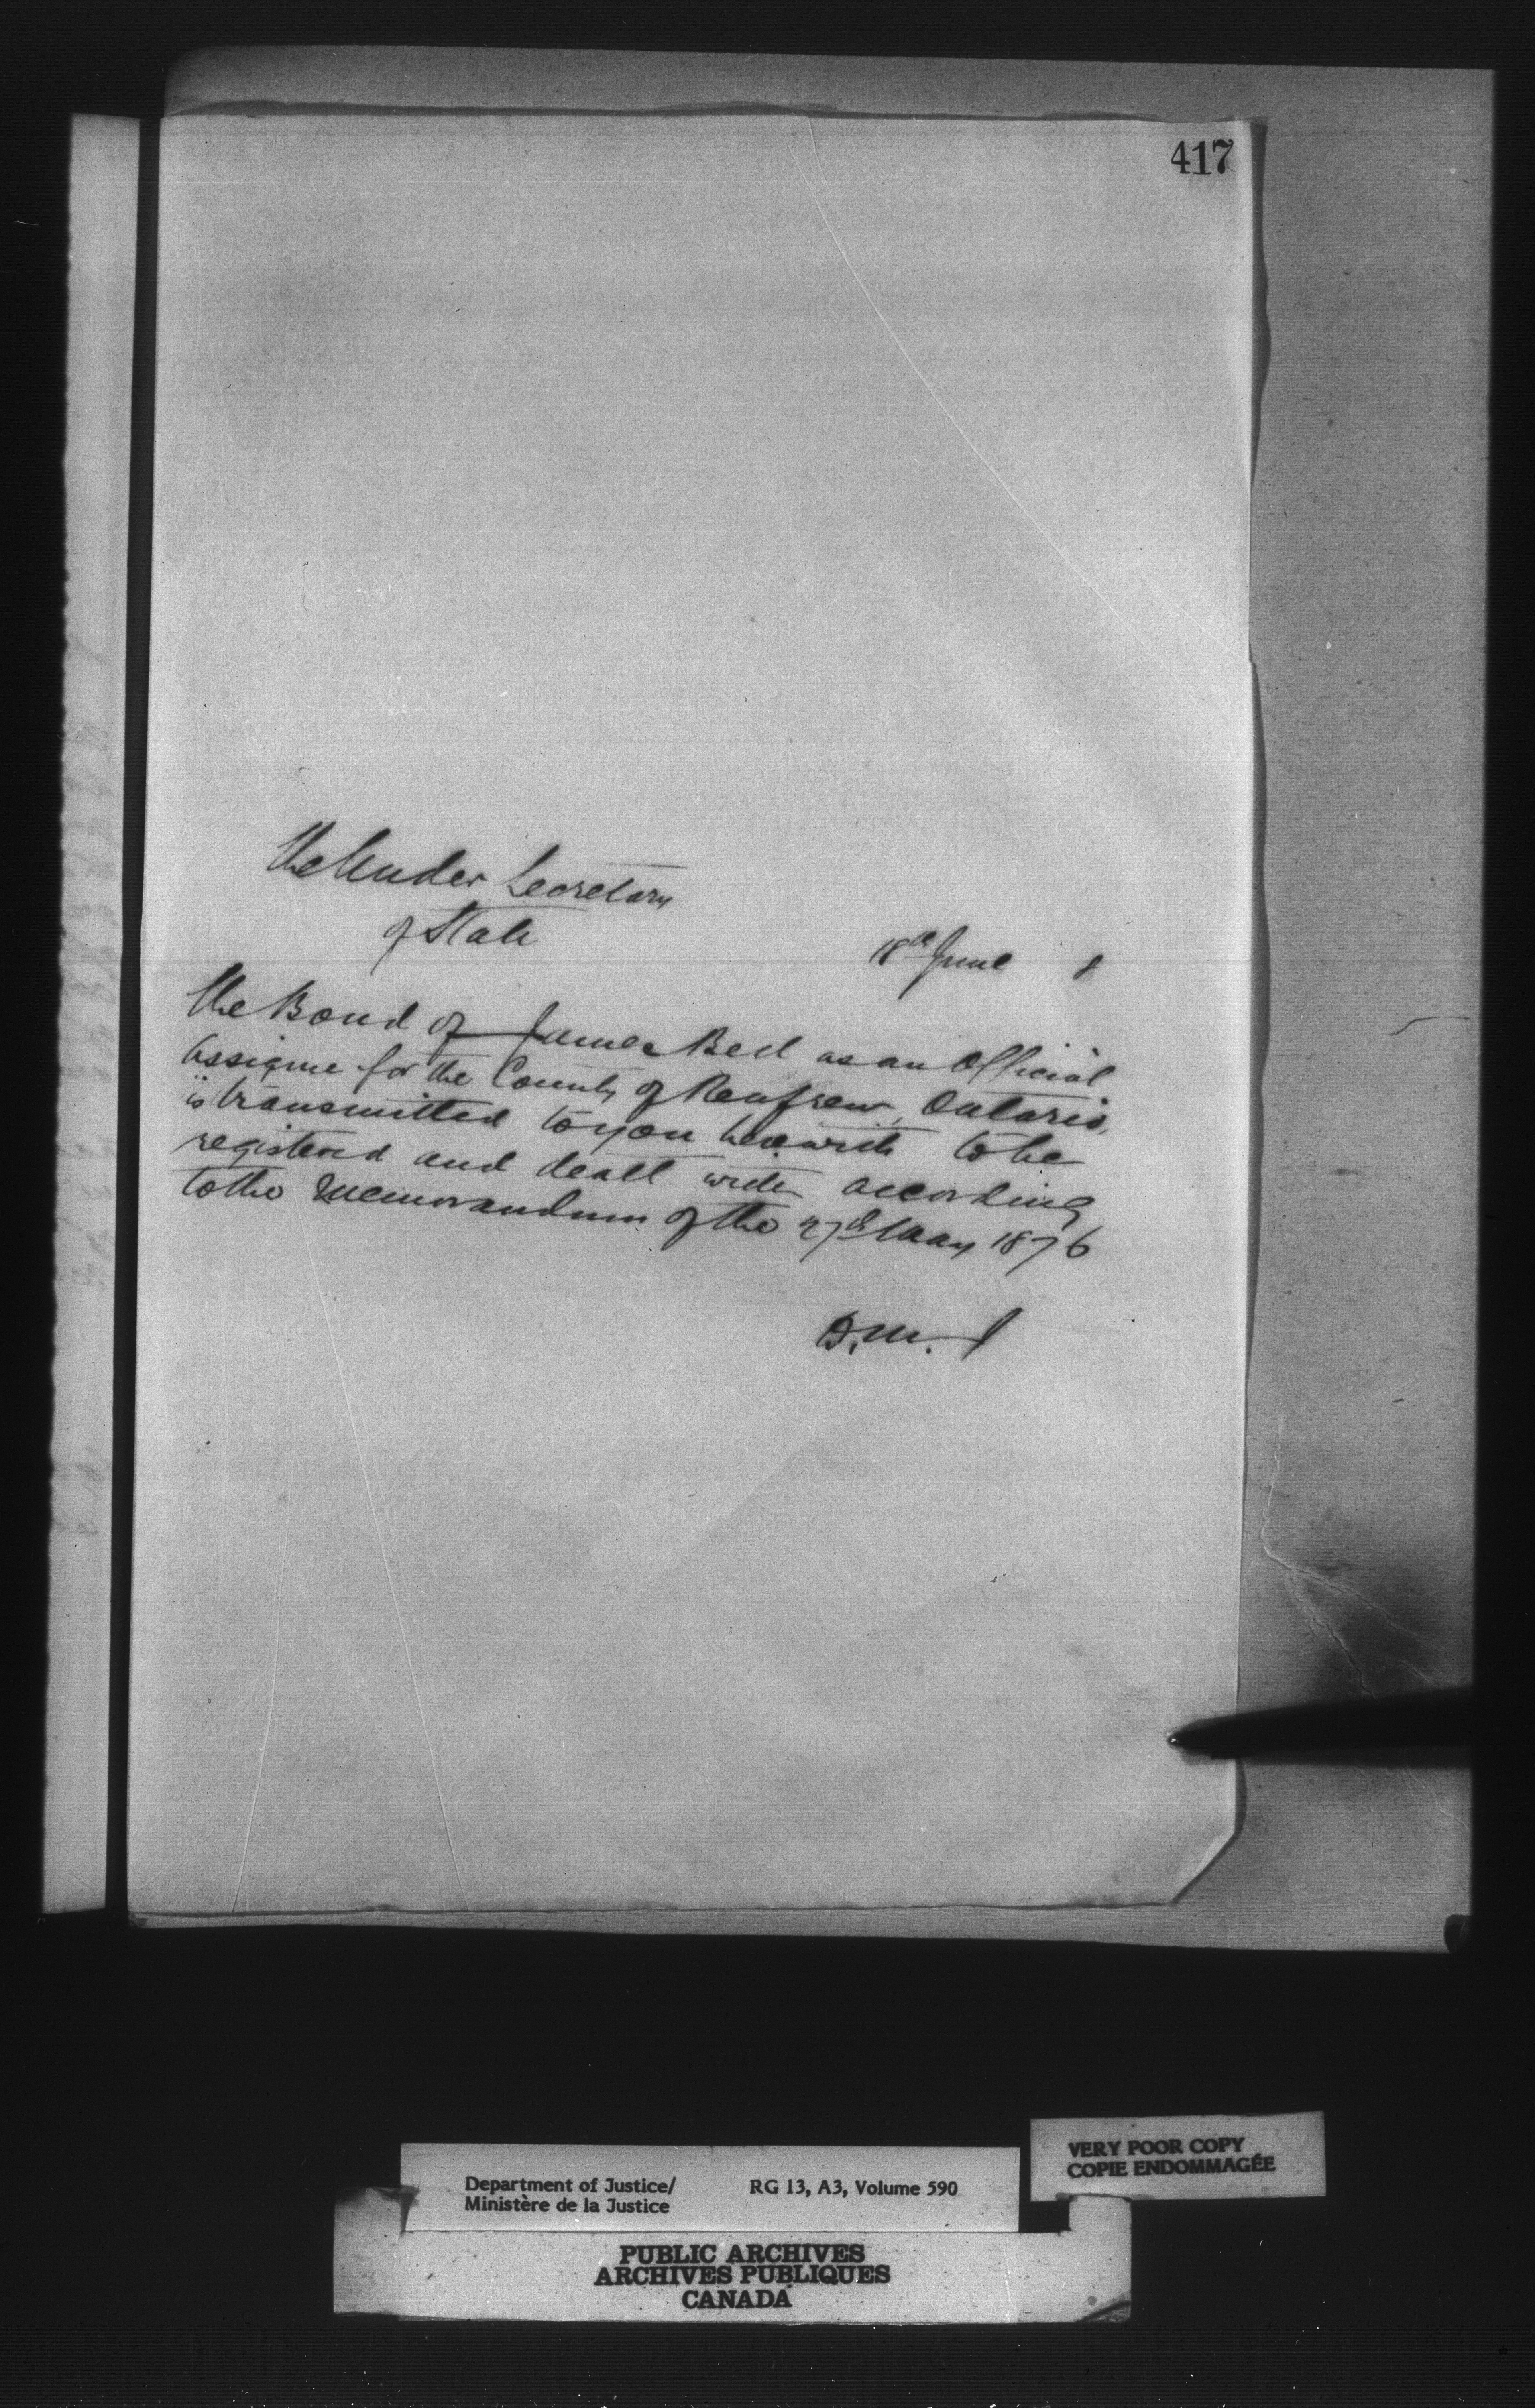 417
The Under Secretary
of State
18th June 8
The Bond of James Bell as an Official
Assignee for the County of Renfrew, Ontario,
is transmitted to you herewith to be
registered and dealt with according
to the Memorandum of the 27th May 1876
D.M.J
Department of Justice/
Ministère de la Justice
RG 13, A3, Volume 590
VERY POOR COPY
COPIE ENDOMMAGÉE
PUBLIC ARCHIVES
ARCHIVES PUBLIQUES
CANADA